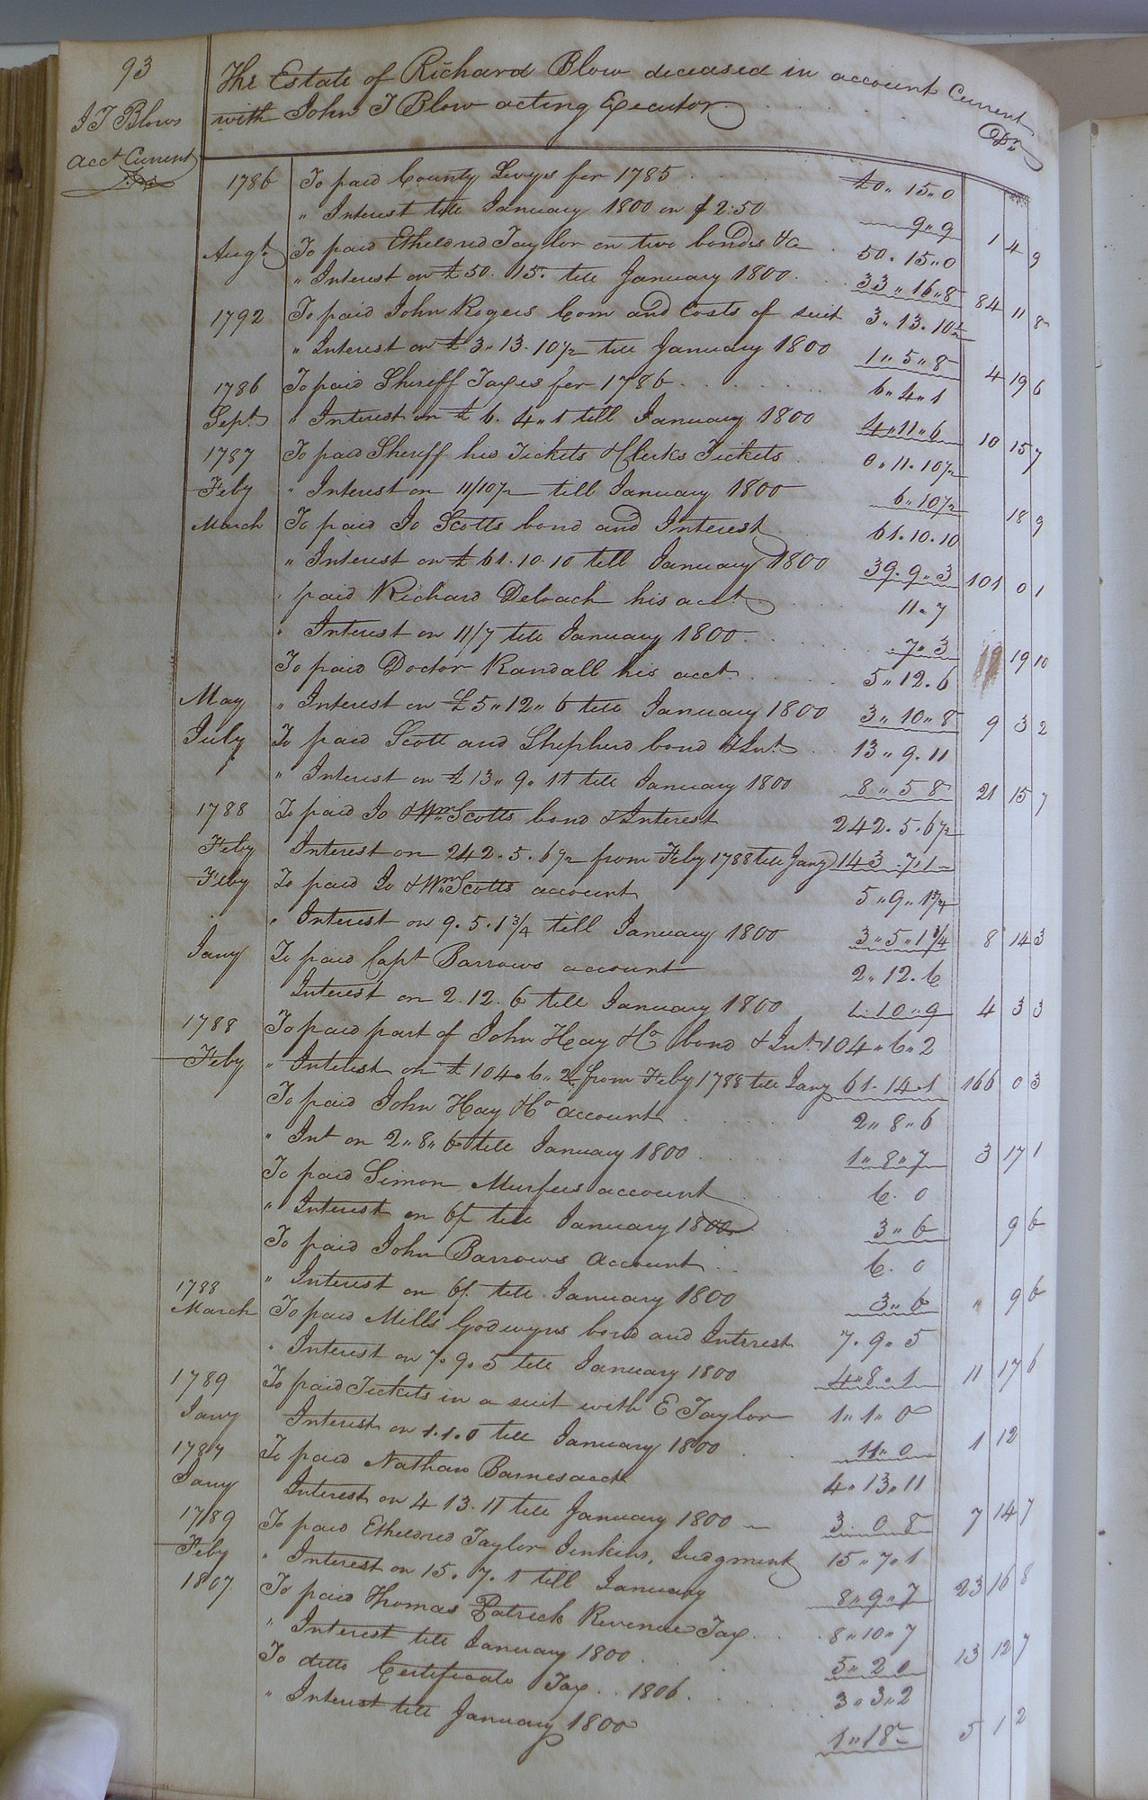 93
J T Blows
Acct Current
Dr
The Estate of Richard Blow deceased in account Current
with John T Blow acting Executor Dr
1786 To paid County Levys for 1785 £0 " 15 " 0
" Interest till January 1800 on $ 2.50 9 " 9 1 4 9
Augt To paid Etheldred Taylor on two bonds &c 50 . 15 " 0
" Interest on £ 50 . 15 . till January 1800 33 " 16 " 8 84 11 8
1792 To paid John Rogers Com and Costs of suit 3 " 13 . 10½
" Interest on £ 3 " 13 . 10½ till January 1800 1 " 5 " 8 4 19 6
1786 To paid Sheriff Taxes for 1786 6 " 4 " 1
Sept " Interest on £ 6 . 4 " 1 till January 1800 4 " 11 " 6 10 15 7
1787 To paid Sheriff his Tickets & Clerks Tickets 0 " 11 . 10½
Feby " Interest on 11/10½ till January 1800 6 " 10½ 18 9
March To paid Jo Scotts bond and Interest 61 . 10 . 10
" Interest on £ 61 . 10 . 10 till January 1800 39 . 9 " 3 101 0 1
" paid Richard Deloach his acct 11 " 7
" Interest on 11/7 till January 1800 7 " 3 19 10
To paid Doctor Randall his acct 5 " 12 . 6
May " Interest on £ 5 " 12 " 6 till January 1800 3 " 10 " 8 9 3 2
July To paid Scott and Shepherd bond & Int 13 " 9 . 11
" Interest on £ 13 " 9 " 11 till January 1800 8 " 5 8 21 15 7
1788 To paid Jo & Wm Scotts bond & Interest 242 . 5 . 6½
Feby Interest on 242 . 5 . 6½ from Feby 1788 till Jany 143 . 7 . 1
Feby To paid Jo & Wm Scotts account 5 " 9 " 1¾
" Interest on 9 . 5 . 1¾ till January 1800 3 " 5 " 1¾ 8 14 3
Jany To paid Capt Barrows account 2 " 12 . 6
Interest on 2 . 12 . 6 till January 1800 1 . 10 " 9 4 3 3
1788 To paid part of John Hay & Co bond & Int 104 " 6 " 2
Feby " Interest on £ 104 " 6 " 2 from Feby 1788 till Jany 61 . 14 . 1 166 0 3
To paid John Hay & Co account 2 " 8 " 6
" Int on 2 " 8 " 6 till January 1800 1 " 8 " 7 3 17 1
To paid Simon Murfees account 6 . 0
" Interest on 6/ till January 1800 3 " 6 9 6
To paid John Barrows Account 6 . 0
" Interest on 6/ till January 1800 3 " 6 " 9 6
1788
March To paid Mills Godwyns bond and Interest 7 . 9 . 5
" Interest on 7 . 9 . 5 till January 1800 4 " 8 . 1 11 17 6
1789 To paid Tickets in a suit with E Taylor 1 " 1 " 0
Jany Interest on 1 . 1 . 0 till January 1800 11 " 0 1 12
1787 To paid Nathan Barnes acct 4 " 13 " 11
Jany Interest on 4 13 . 11 till January 1800 3 . 0 . 8 7 14 7
1789 To paid Etheldred Taylor Jenkins, Judgment 15 " 7 " 1
Feby " Interest on 15 . 7 . 1 till January 8 " 9 " 7 23 16 8
1807 To paid Thomas Patrick Revenue Tax 8 " 10 " 7
" Interest till January 1800 5 " 2 " 0 13 12 7
To ditto Certificate Tax 1806 3 " 3 " 2
" Interest till January 1800 1 " 18 " 5 1 2